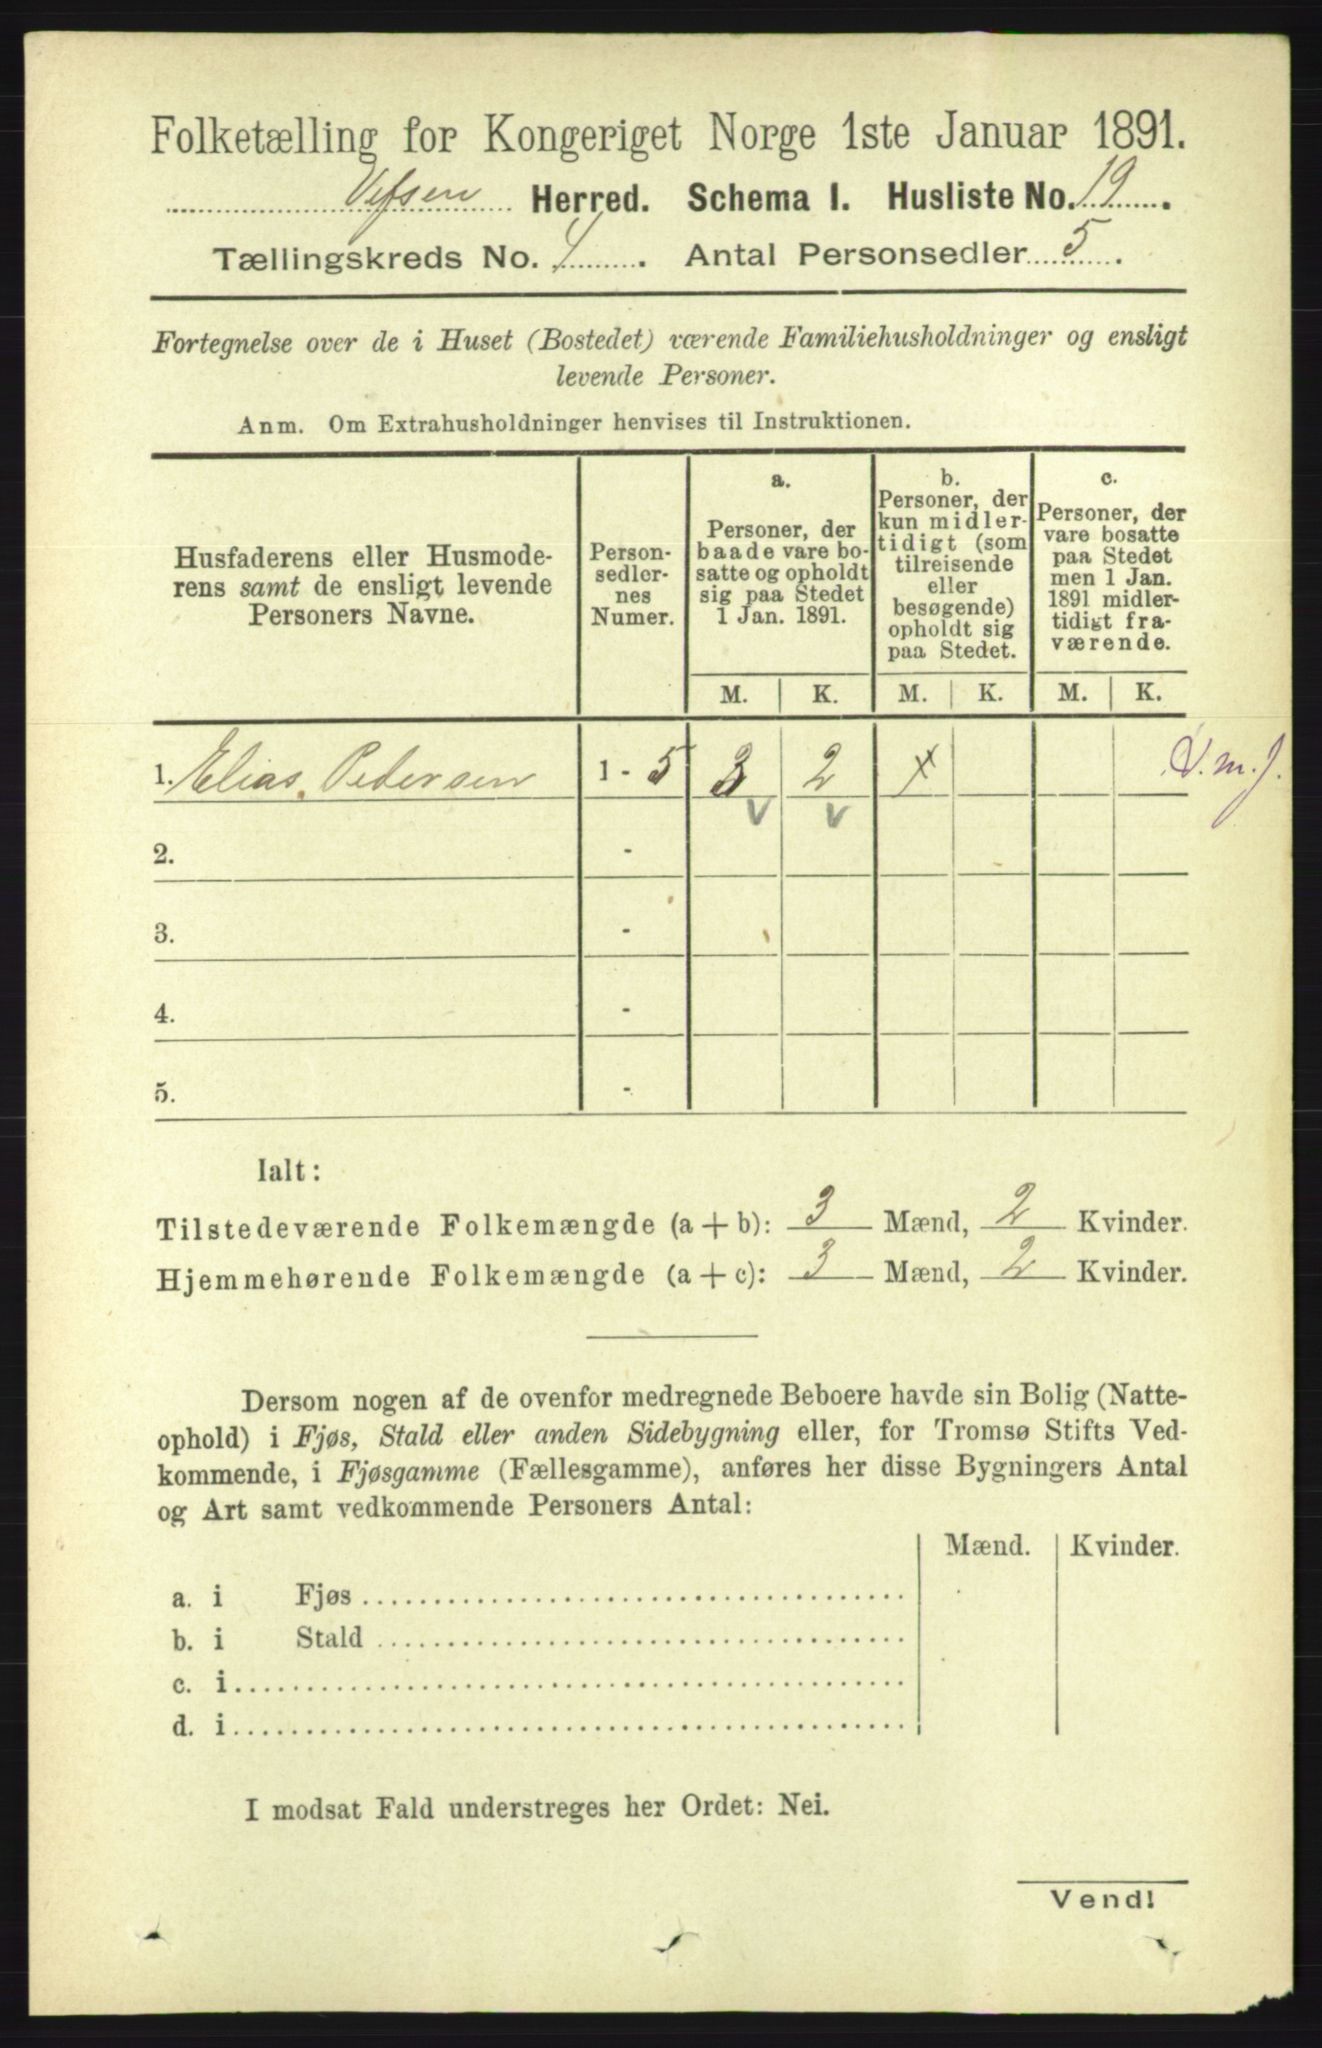 Folketælling for Kongeriget Norge 1ste Januar 1891.
Vefsen Herred. Schema I. Husliste No. 19.
Tællingskreds No. 4. Antal Personsedler 5.
Fortegnelse over de i Huset (Bostedet) værende Familiehusholdninger og ensligt
levende Personer.
Anm. Om Extrahusholdninger henvises til Instruktionen.
Husfaderens eller Husmode-
rens samt de ensligt levende
Personers Navne.
Person-
sedler-
nes
Numer.
a.
Personer, der
baade vare bo-
satte og opholdt
sig paa Stedet
1 Jan. 1891.
b.
Personer, der
kun midler-
tidigt (som
tilreisende
eller
besøgende)
opholdt sig
paa Stedet.
c.
Personer, der
vare bosatte
paa Stedet
men 1 Jan.
1891 midler-
tidigt fra-
værende.
M. K. M. K. M. K.
1. Elias Pedersen 1 - 5 3 2 x
v v
2. -
3. -
4. -
5. -
Ialt:
Tilstedeværende Folkemængde (a + b): 3 Mænd, 2 Kvinder.
Hjemmehørende Folkemængde (a + c): 3 Mænd, 2 Kvinder.
Dersom nogen af de ovenfor medregnede Beboere havde sin Bolig (Natte-
ophold) i Fjøs, Stald eller anden Sidebygning eller, for Tromsø Stifts Ved-
kommende, i Fjøsgamme (Fællesgamme), anføres her disse Bygningers Antal
og Art samt vedkommende Personers Antal:
Mænd. Kvinder.
a. i Fjøs
b. i Stald
c. i
d. i
I modsat Fald understreges her Ordet: Nei.
Vend!